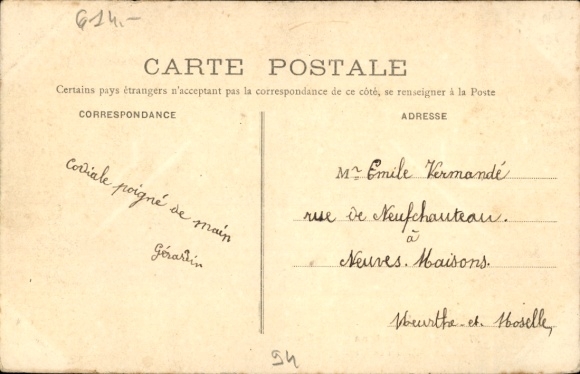 614.-
CARTE POSTALE
Certains pays étrangers n'acceptent pas la correspondance de ce côté, se renseigner à la Poste
CORRESPONDANCE
ADRESSE
Cordiale poigné de main
Gérardin
Mr Emile Vermandé
rue de Neufchauteau.
à
Neuves-Maisons.
Meurthe-et-Moselle,
94